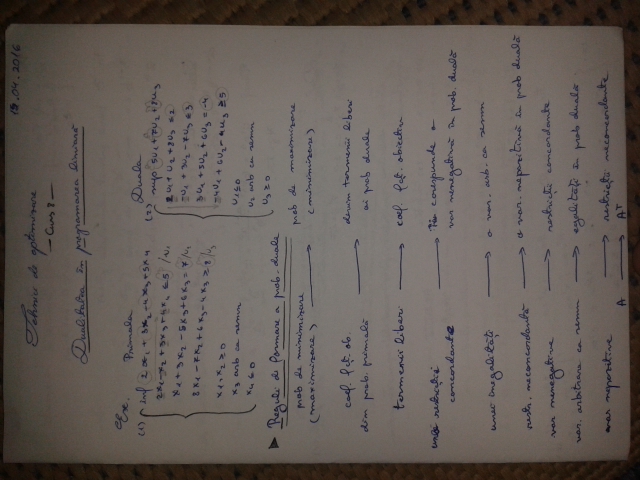 12.04.2016
Tehnici de optimizare
— Curs 8 —
Dualitatea în programarea liniară
Ex. Primala
(1) inf 2x1 + 3x2 - 4x3 + 5x4
2x1 - x2 + 3x3 + 4x4 ≤ 5 /u1
x1 + 3x2 - 5x3 + 6x4 = 7 /u2
8x1 - 7x2 + 6x3 - 4x4 ≥ 8 /u3
x1, x2 ≥ 0
x3 arb ca semn
x4 ≤ 0
Duala
(2) sup 5u1 + 7u2 + 8u3
2u1 + u2 + 8u3 ≤ 2
-u1 + 3u2 - 7u3 ≤ 3
3u1 + 5u2 + 6u3 = -4
-4u1 + 6u2 - 4u3 ≥ 5
u1 ≤ 0
u2 arb ca semn
u3 ≥ 0
Reguli de formare a prob. duale
prob de minimizare (maximizare) → prob de maximizare (minimizare)
coef. fct. ob. din prob. primală → devin termenii liberi ai prob duale
termenii liberi → coef. fct. obiectiv
unei restricții concordante → îi corespunde o var nenegativă în prob. duală
unei inegalități → o var. arb. ca semn
restr. neconcordantă → o var. nepozitivă în prob duală
var nenegative → restricții concordante
var. arbitrare ca semn → egalități în prob duală.
var nepozitive → restricții neconcordante
A → A^T